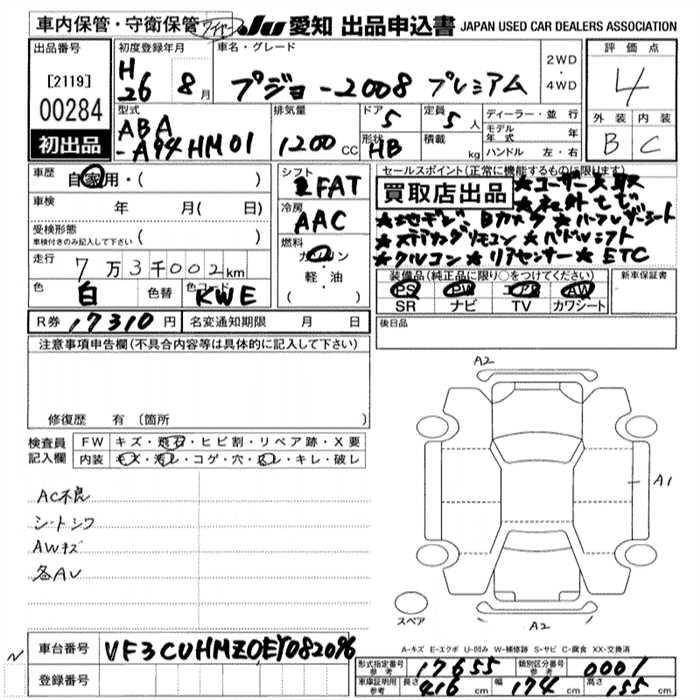 車内保管・守衛保管 JU 愛知 出品申込書 JAPAN USED CAR DEALERS ASSOCIATION
出品番号 初度登録年月 車名・グレード 評価点
[2119] H26 8月 プジョー2008 プレミアム 2WD・4WD 4
00284 型式 排気量 ドア 定員 ディーラー・並行 外装 内装
初出品 ABA-A94HM01 1200CC 5 5人 モデル年式 年 B C
形状 HB 積載 kg ハンドル 左・右
車歴 自家用・( ) シフト FAT セールスポイント(正常に機能するものに限ります)
車検 年 月( 日) 冷房 AAC 買取店出品 ★ユーザー買取
受検形態 車検付きのみ記入して下さい ( ) ★地デジ ★Bカメラ ★ハーフレザーシート
走行 7万3千002km 燃料 ガソリン・軽・油 ( ) ★ステアリングリモコン ★パドルシフト
★クルコン ★リアセンサー ★ETC
色 白 色替 色コード KWE 装備品(純正品に限り○をつけてください) 新車保証書
PS PW エアB AW
SR ナビ TV カワシート
R券 17310円 名変通知期限 月 日 後日品
注意事項申告欄(不具合内容等は具体的に記入して下さい)
修復歴 有 (箇所
検査員記入欄 FW キズ・飛石・ヒビ割・リペア跡・X要
内装 キズ・汚レ・コゲ・穴・スレ・キレ・破レ
A2
A1
AC不良
シートシワ
AWキズ
各AU
スペア
A2
A-キズ E-エクボ U-凹み W-補修跡 S-サビ C-腐食 XX-交換済
車台番号 VF3CUHMZ0EY082096
登録番号
型式指定番号 参考 17655 類別区分番号 参考 0001
車庫証明用 参考 長さ 416cm 幅 174cm 高さ 155cm